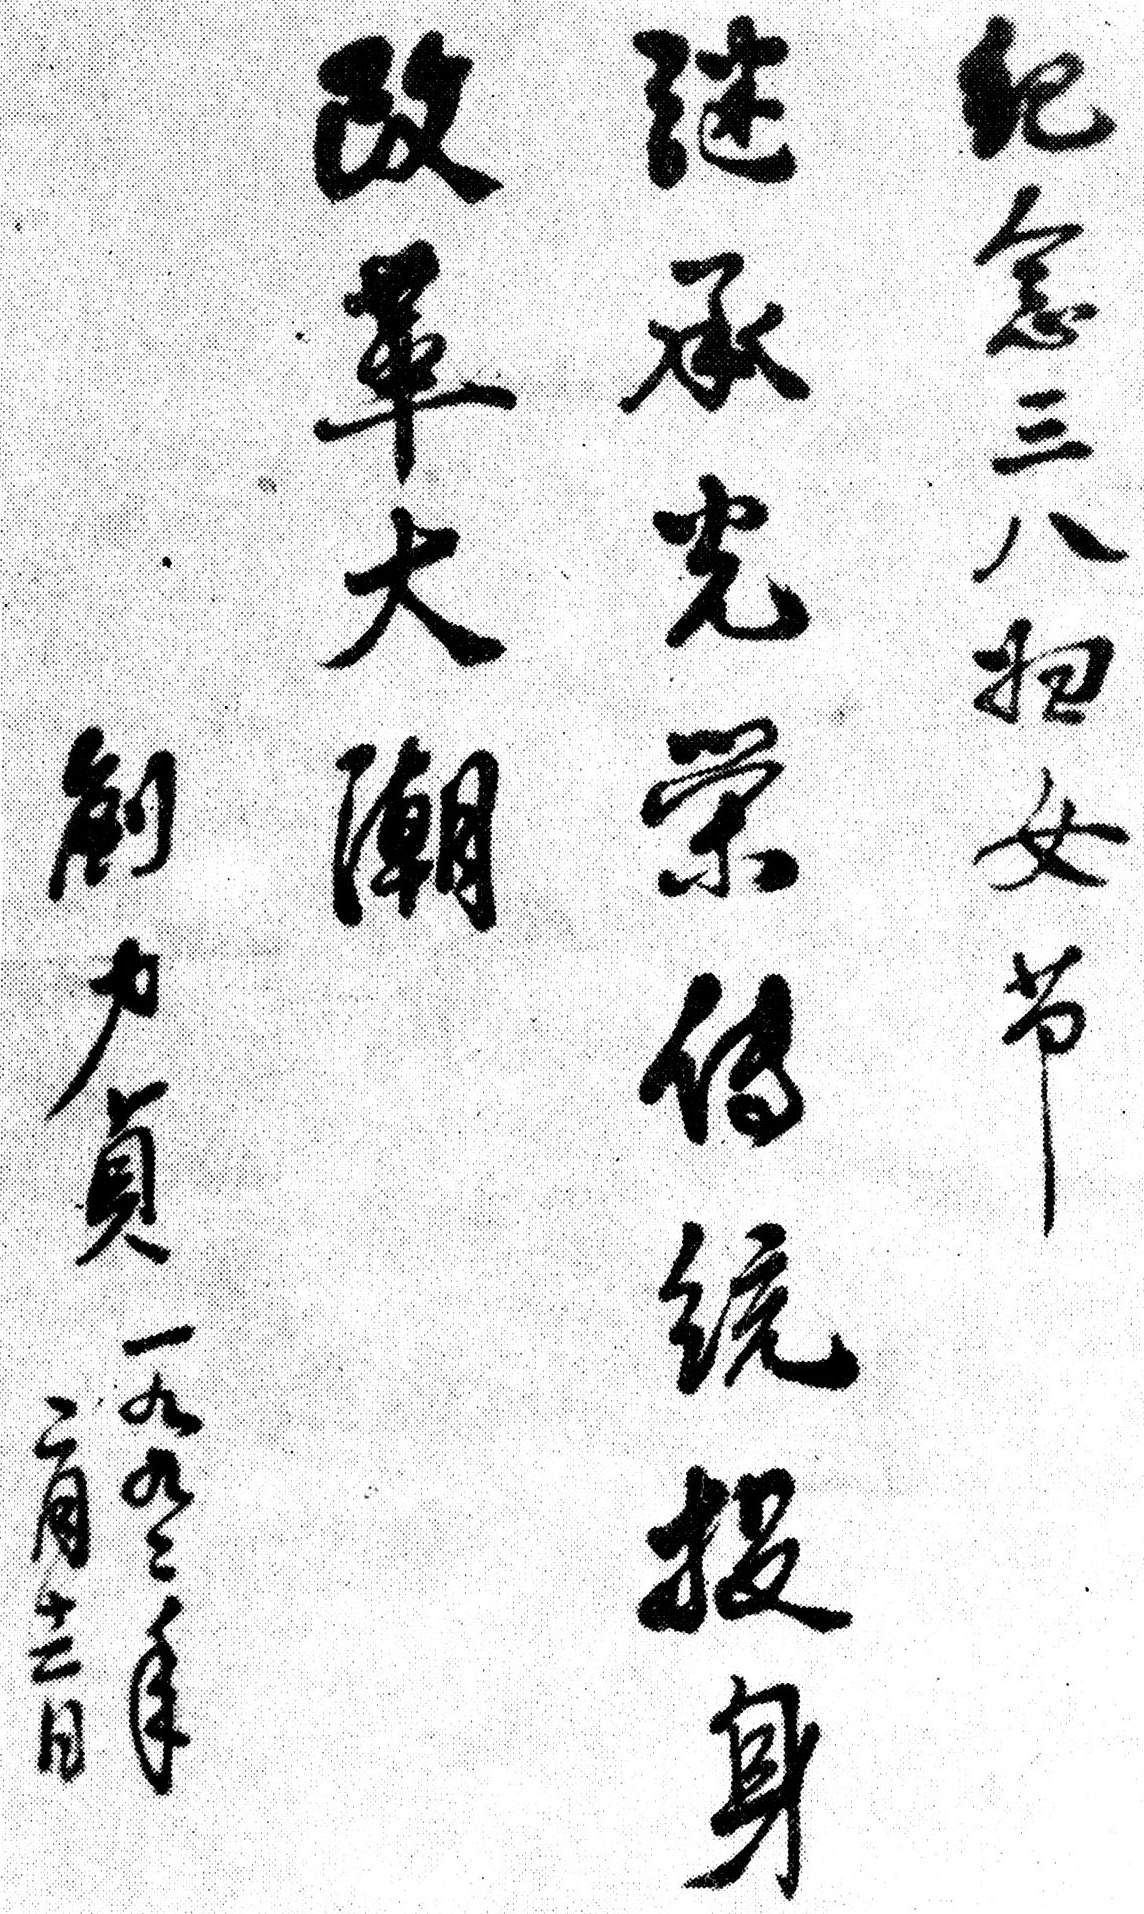 纪念三八妇女节
继承光荣传统投身
改革大潮
劉力貞
一九九二年
二月十二日